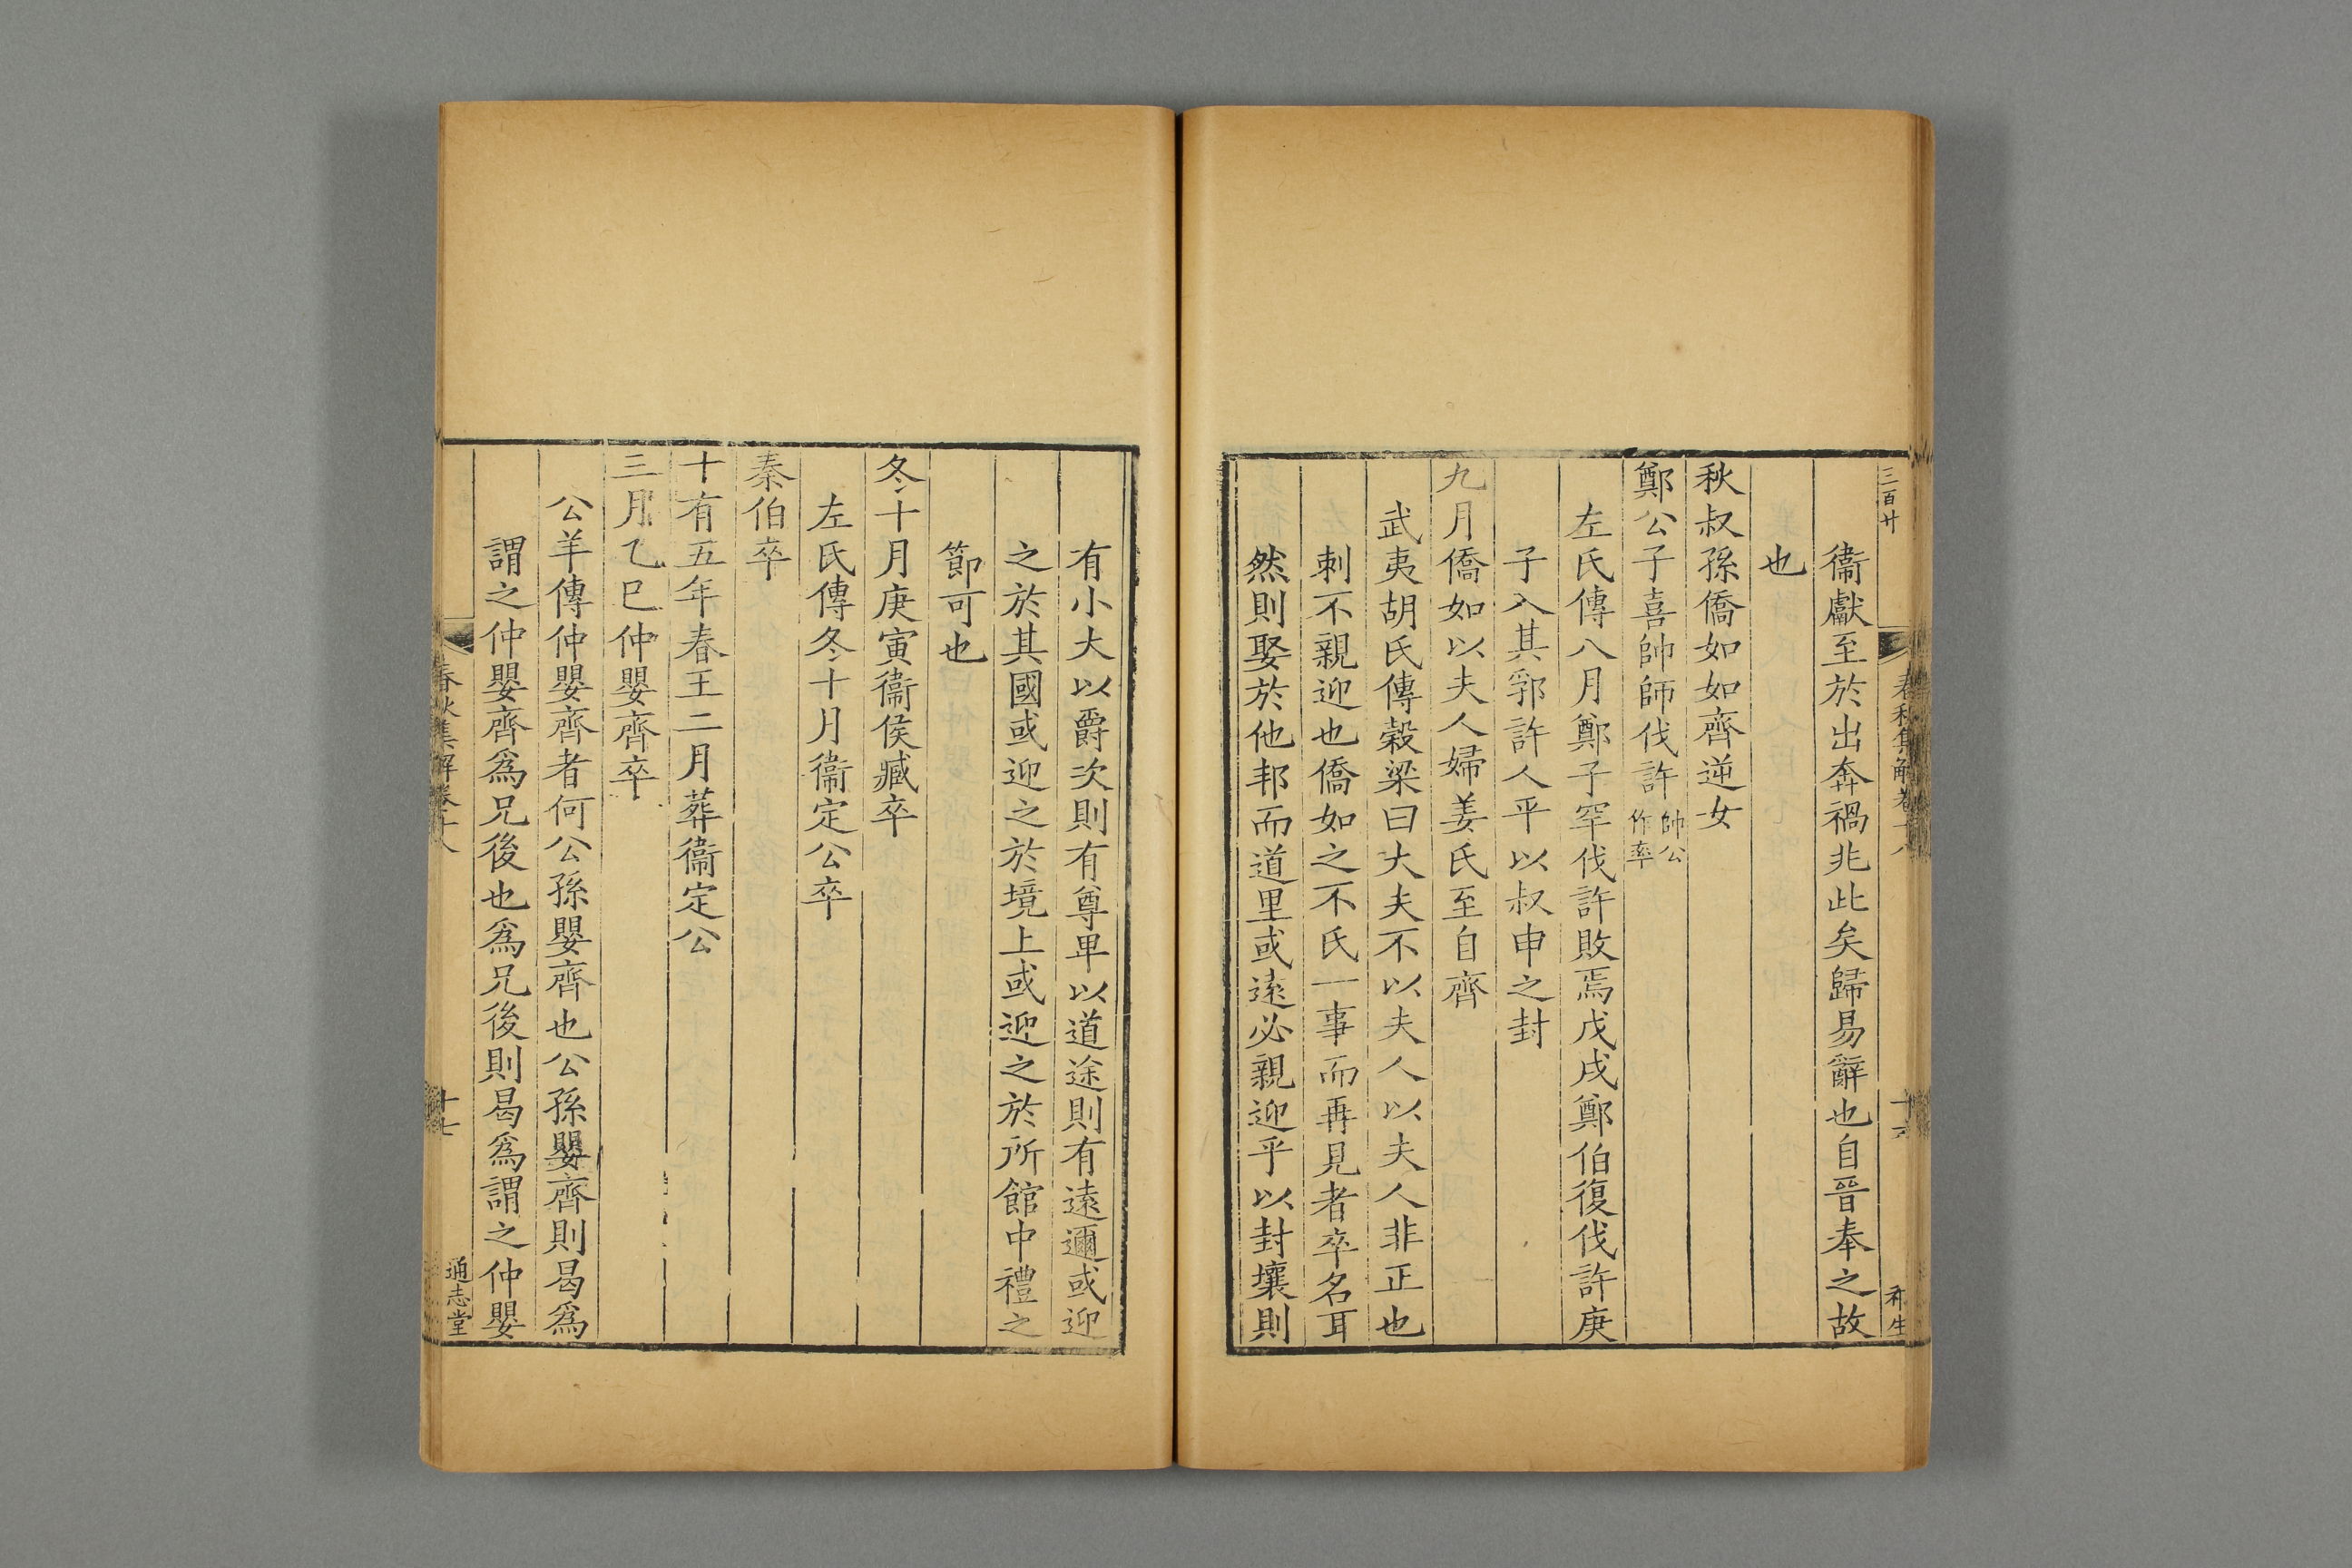 三百廿
春秋集解卷十八
十六
衞獻至於出奔禍兆此矣歸易辭也自晉奉之故
也
秋叔孫僑如如齊逆女
鄭公子喜帥師伐許帥公
作率
左氏傳八月鄭子罕伐許敗焉戊戌鄭伯復伐許庚
子入其郛許人平以叔申之封
九月僑如以夫人婦姜氏至自齊
武夷胡氏傳穀梁曰大夫不以夫人以夫人非正也
刺不親迎也僑如之不氏一事而再見者卒名耳
然則娶於他邦而道里或遠必親迎乎以封壤則
有小大以爵次則有尊卑以道途則有遠邇或迎
之於其國或迎之於境上或迎之於所館中禮之
節可也
冬十月庚寅衞侯臧卒
左氏傳冬十月衞定公卒
秦伯卒
十有五年春王二月葬衞定公
三月乙巳仲嬰齊卒
公羊傳仲嬰齊者何公孫嬰齊也公孫嬰齊則曷爲
謂之仲嬰齊爲兄後也爲兄後則曷爲謂之仲嬰
春秋集解卷十八
十七
通志堂